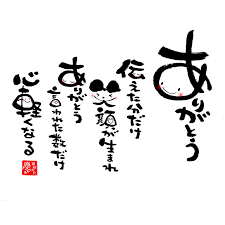 ありがとう
伝えた分だけ
笑顔が生まれ
ありがとう
言われた数だけ
心軽くなる